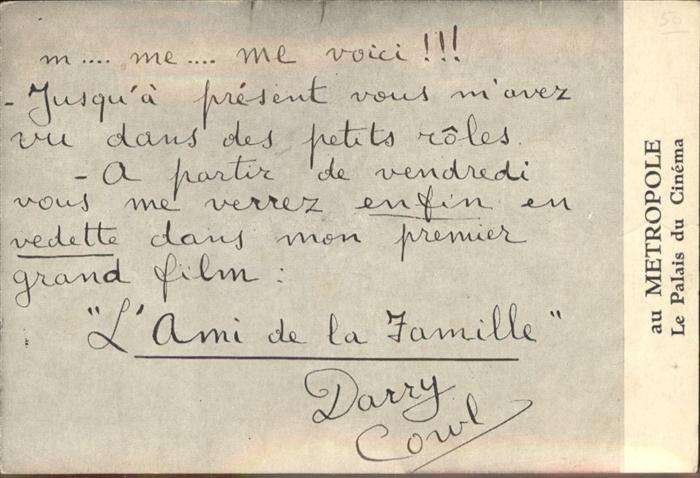 m.... me.... me voici !!!
- Jusqu'à présent vous m'avez
vu dans des petits rôles.
- A partir de vendredi
vous me verrez enfin en
vedette dans mon premier
grand film :
"L'Ami de la Famille"
Darry
Cowl
au METROPOLE
Le Palais du Cinéma
50